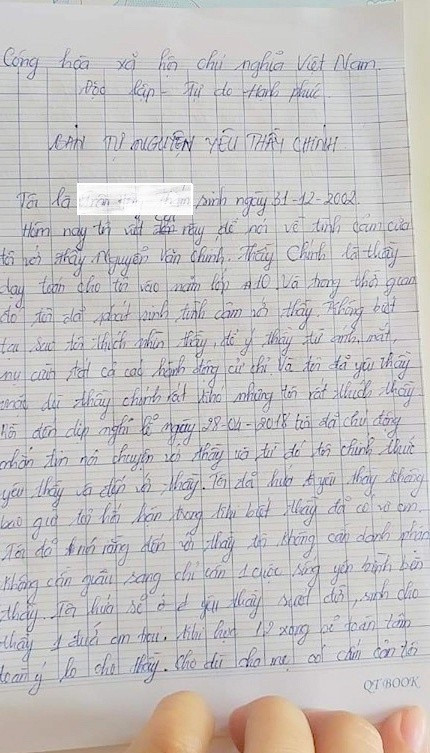 Cộng hòa xã hội chủ nghĩa Việt Nam
Độc lập - Tự do Hạnh phúc
BẢN TỰ NGUYỆN YÊU THẦY CHÍNH
Tôi là sinh ngày 31-12-2002.
Hôm nay tôi viết này, để nói về tình cảm của
tôi với thầy Nguyễn Văn Chính. Thầy Chính là thầy
dạy toán cho tôi vào năm lớp A10. Và trong thời gian
đó tôi đã phát sinh tình cảm với thầy. Không biết
tại sao tôi thích nhìn thầy, để ý thầy từ ánh mắt,
nụ cười tất cả các hành động cử chỉ. Và tôi đã yêu thầy
mặc dù thầy chính rất nhưng tôi rất thích thầy
đến dịp nghỉ lễ ngày 28-04-2018 tôi đã chủ động
nhắn tin nói chuyện với thầy và từ đó tôi chính thức
yêu thầy và đến với thầy. Tôi đã hứa yêu thầy không
bao giờ tôi hối hận trong khi biết thầy đã có vợ con.
Tôi đã nói rằng đến với thầy tôi không cần danh phận
không cần giàu sang chỉ cần 1 cuộc sống yên bình bên
thầy. Tôi hứa sẽ yêu thầy suốt đời, sinh cho
thầy 1 đứa con trai. Khi học 12 xong sẽ toàn tâm
toàn ý lo cho thầy. Cho dù cha mẹ có cấm cản tôi
QTBOOK